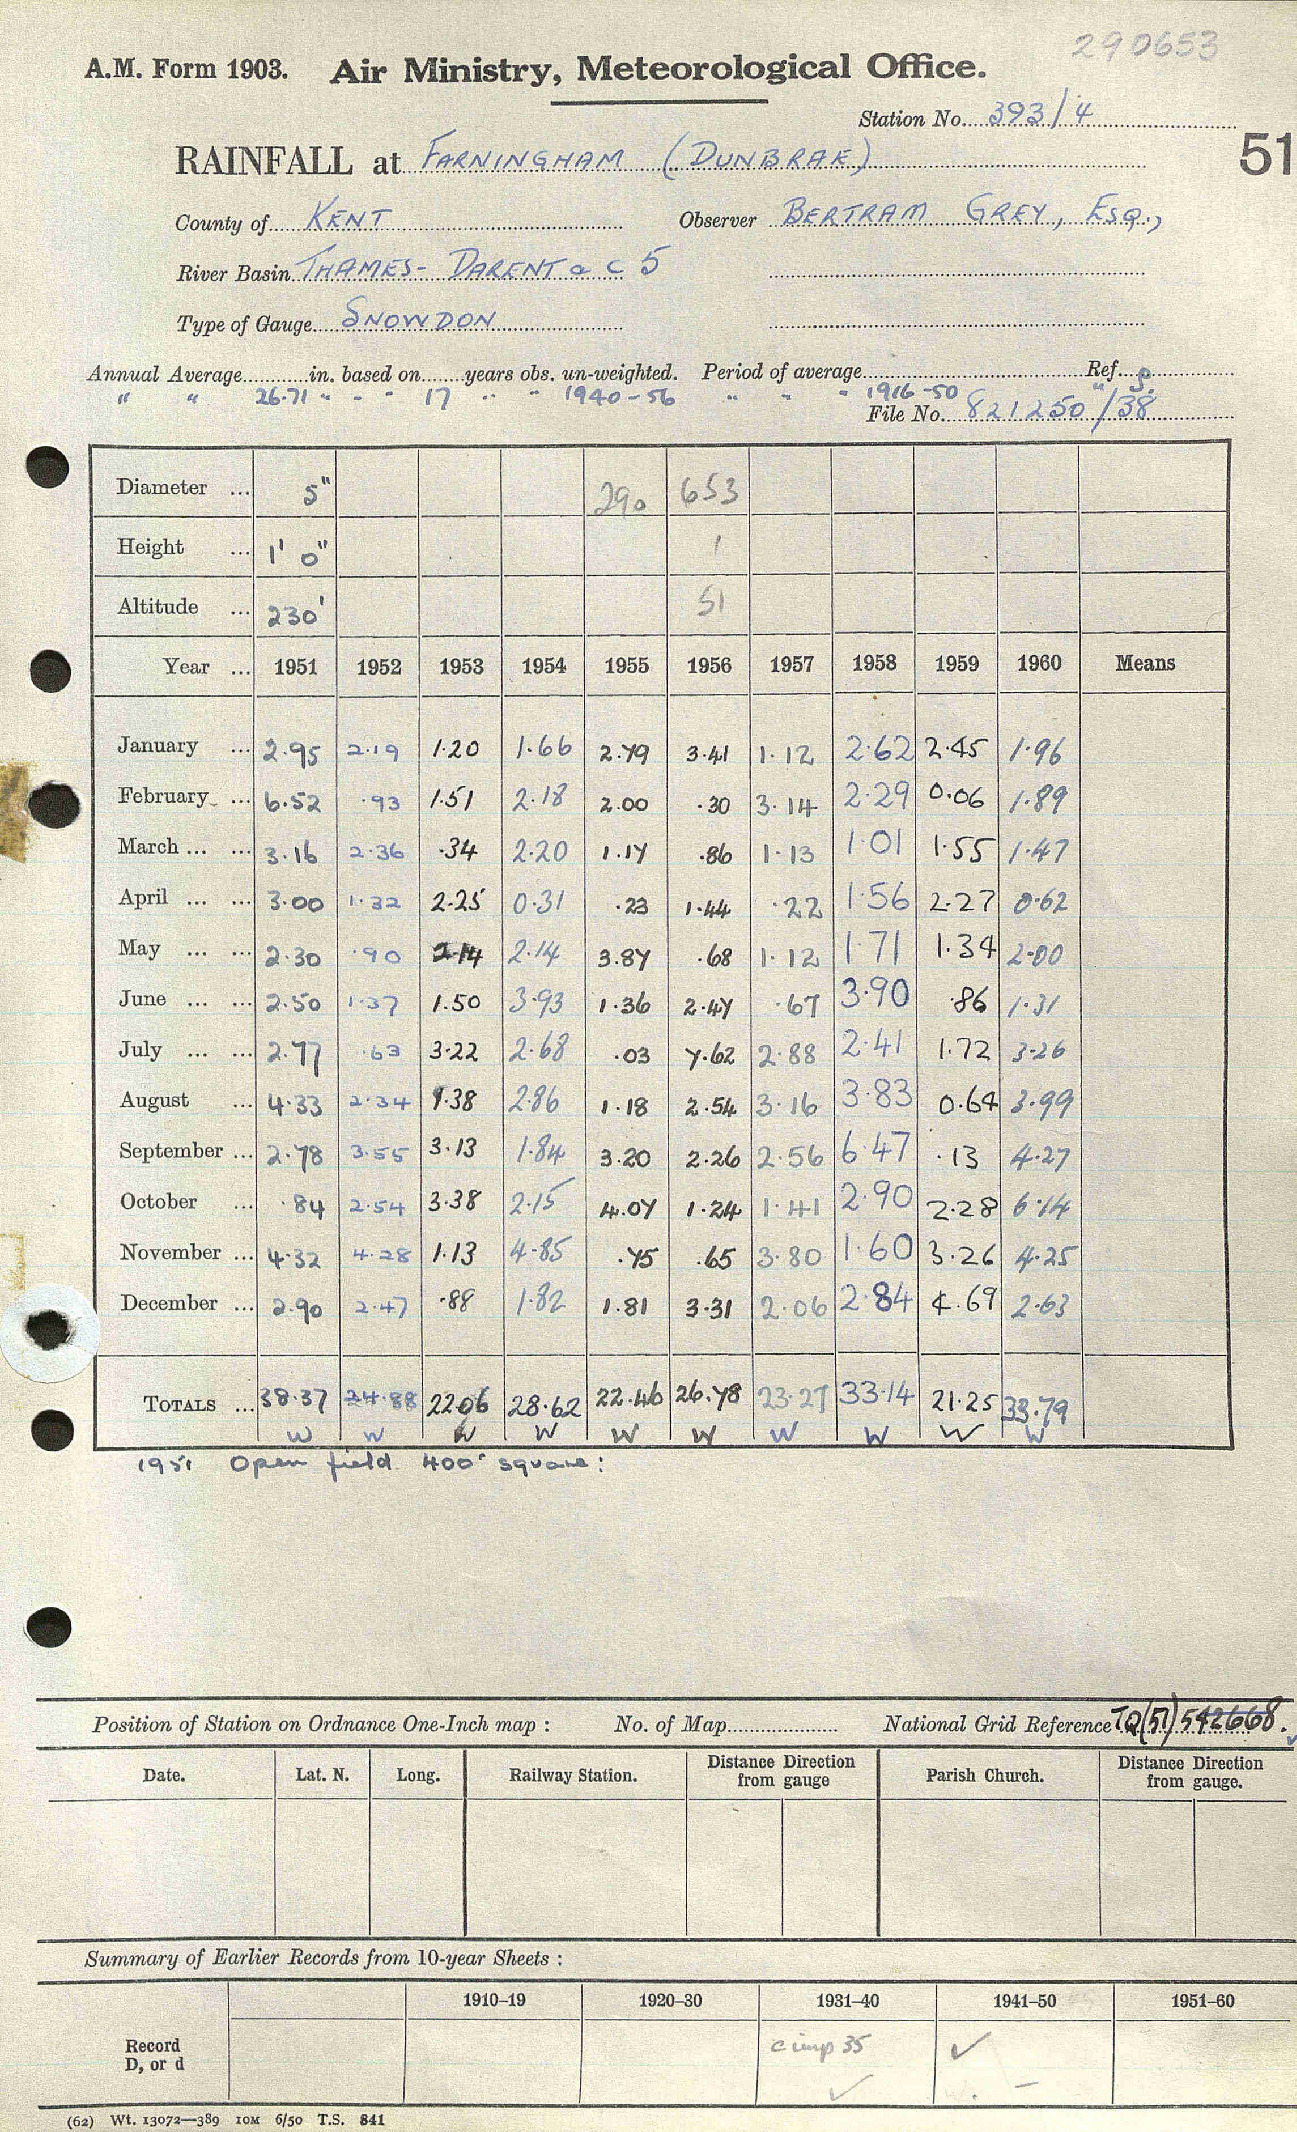 290653
A.M. Form 1903. Air Ministry, Meteorological Office.
Station No. 393/4
51
RAINFALL at FARNINGHAM (DUNBRAE)
County of KENT Observer BERTRAM GREY, ESQ.,
River Basin THAMES- DARENT a c 5
Type of Gauge SNOWDON
Annual Average in. based on years obs. un-weighted. Period of average Ref.
" " 26.71 " " " 17 " " 1940-56 " " " 1916-50 "
File No. 821250/38
Diameter ... 5" 290 653
Height ... 1' 0" 1
Altitude ... 230' 51
Year ... 1951 1952 1953 1954 1955 1956 1957 1958 1959 1960 Means
January ... 2.95 2.19 1.20 1.66 2.79 3.41 1.12 2.62 2.45 1.96
February ... 6.52 .93 1.51 2.18 2.00 .30 3.14 2.29 0.06 1.89
March ... ... 3.16 2.36 .34 2.20 1.17 .86 1.13 1.01 1.55 1.47
April ... ... 3.00 1.32 2.25 0.31 .23 1.44 .22 1.56 2.27 0.62
May ... ... 2.30 .90 2.14 2.14 3.87 .68 1.12 1.71 1.34 2.00
June ... ... 2.50 1.37 1.50 3.93 1.36 2.47 .67 3.90 .86 1.31
July ... ... 2.77 .63 3.22 2.68 .03 7.62 2.88 2.41 1.72 3.26
August ... 4.33 2.34 1.38 2.86 1.18 2.54 3.16 3.83 0.64 3.99
September ... 2.78 3.55 3.13 1.84 3.20 2.26 2.56 6.47 .13 4.27
October ... .84 2.54 3.38 2.15 4.07 1.24 1.41 2.90 2.28 6.14
November ... 4.32 4.28 1.13 4.85 .75 .65 3.80 1.60 3.26 4.25
December ... 2.90 2.47 .88 1.82 1.81 3.31 2.06 2.84 4.69 2.63
TOTALS ... 38.37 24.88 22.06 28.62 22.46 26.78 23.27 33.14 21.25 33.79
W W W W W W W W W W
1951 Open field 400' square:
Position of Station on Ordnance One-Inch map : No. of Map National Grid Reference TQ(51) 542668.
Date. Lat. N. Long. Railway Station. Distance Direction from gauge Parish Church. Distance Direction from gauge.
Summary of Earlier Records from 10-year Sheets :
1910–19 1920–30 1931–40 1941–50 1951–60
Record
D, or d
(62) Wt. 13072—389 10M 6/50 T.S. 841